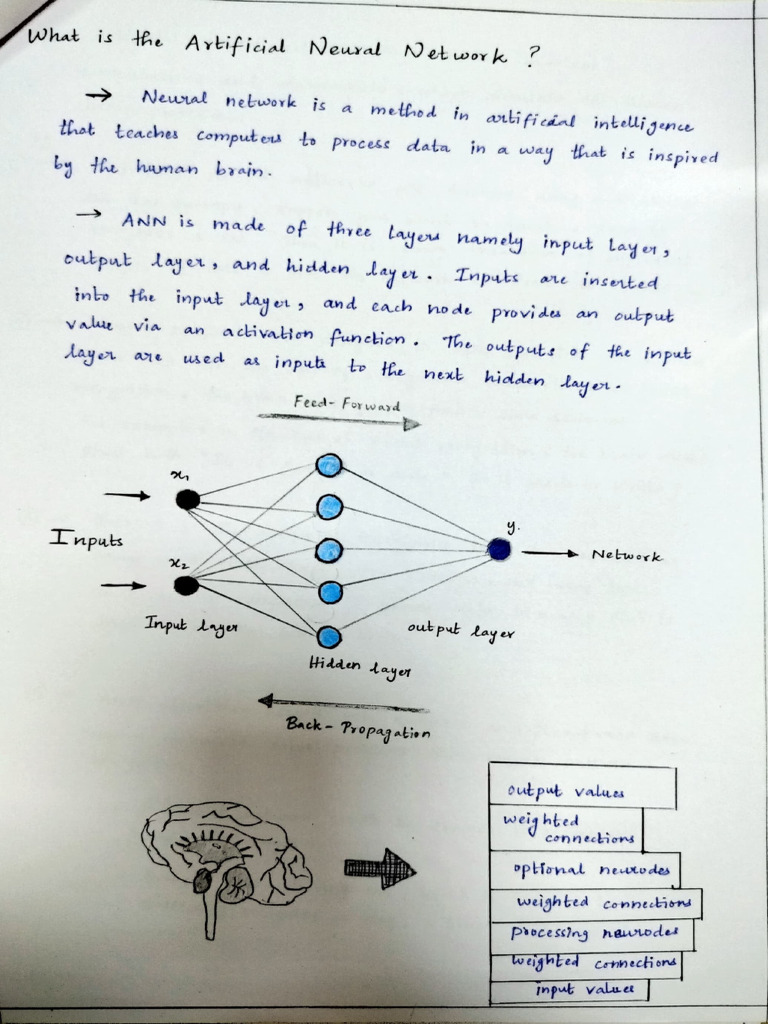 What is the Artificial Neural Network ?
→ Neural network is a method in artificial intelligence
that teaches computers to process data in a way that is inspired
by the human brain.
→ ANN is made of three layers namely input layer,
output layer, and hidden layer. Inputs are inserted
into the input layer, and each node provides an output
value via an activation function. The outputs of the input
layer are used as inputs to the next hidden layer.
Feed-Forward
x1
y.
Inputs
Network
x2
Input layer
output layer
Hidden layer
Back-Propagation
output values
weighted
connections
optional neurodes
weighted connections
processing neurodes
weighted connections
input values